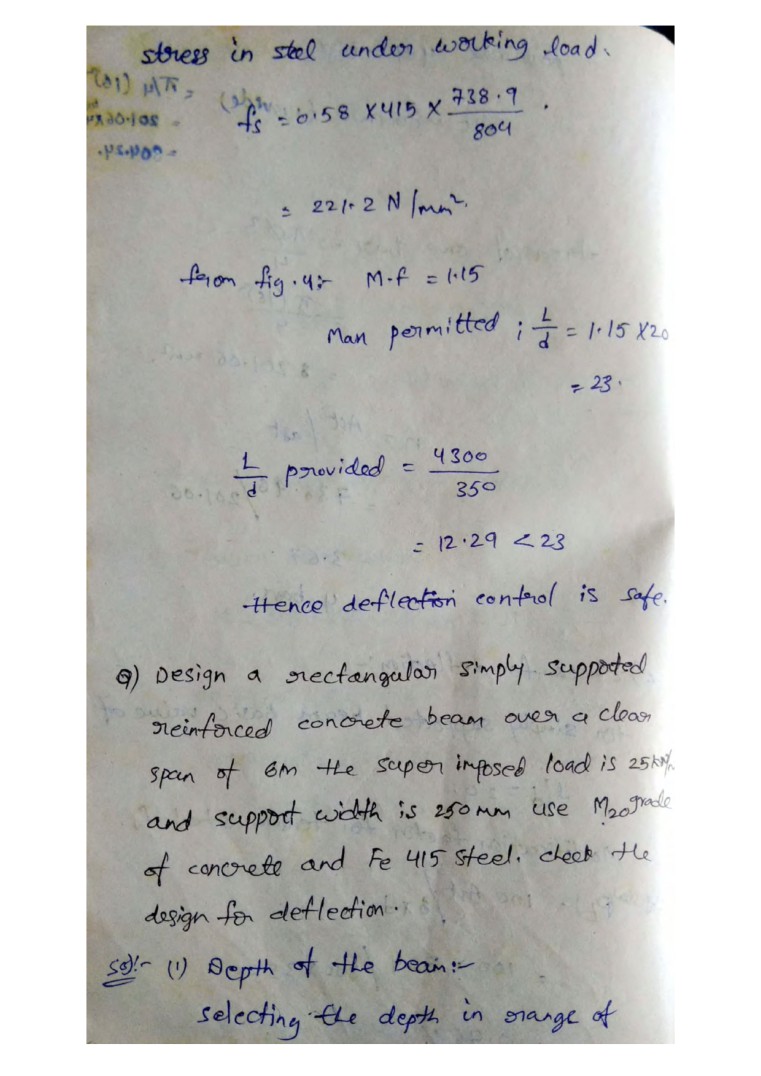 stress in steel under working load.
fs = 0.58 X 415 X 738.9 / 804 .
= 221.2 N/mm².
from fig.4:- M.f = 1.15
Man permitted ; L/d = 1.15 X 20
= 23.
L/d provided = 4300 / 350
= 12.29 < 23
Hence deflection control is safe.
Q) Design a rectangular simply supported
reinforced concrete beam over a clear
span of 6m the super imposed load is 25kN/m
and support width is 250mm use M20 grade
of concrete and Fe 415 steel. check the
design for deflection.
Sol:- (1) Depth of the beam:-
selecting the depth in range of